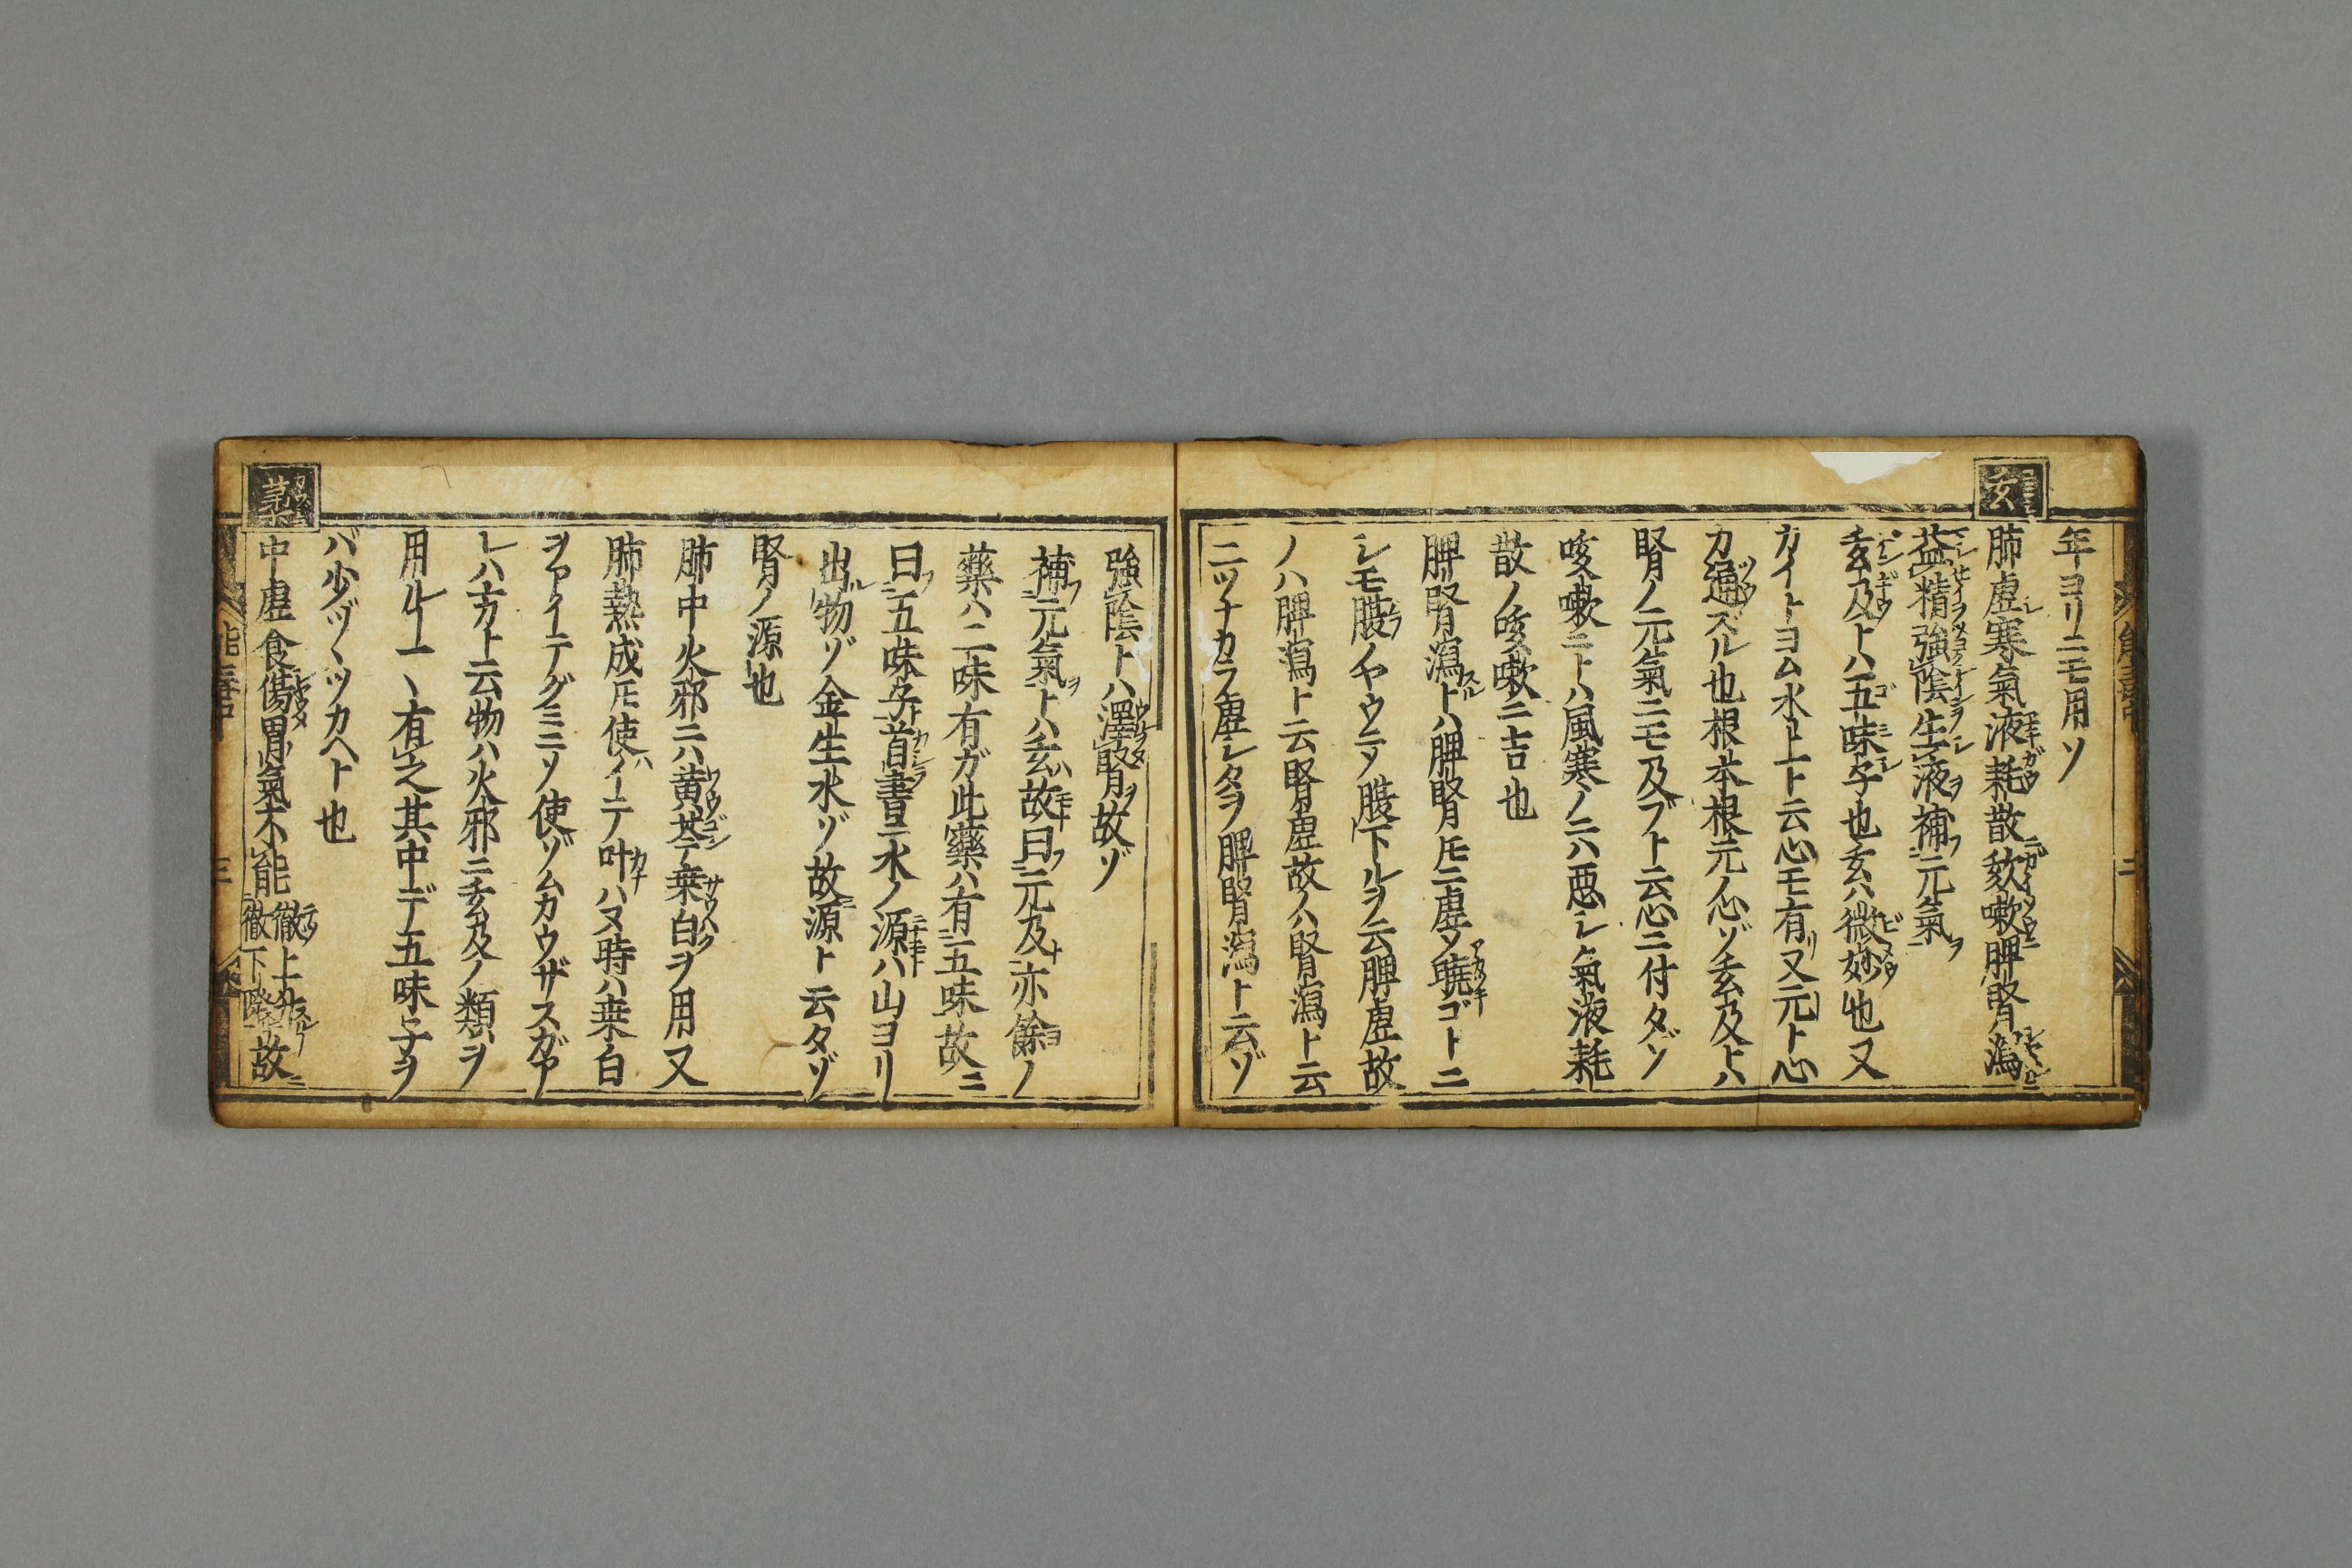 年ヨリニモ用ソ
玄
肺虚寒氣液耗散欬嗽脾腎瀉
益精強陰生液補元氣
玄及トハ五味子也玄ハ微妙也又
カイトヨム水上ト云心モ有又元ト心
カ通ズル也根本根元ノ心ゾ玄及トハ
腎ノ元氣ニモ及ブト云心ニ付タゾ
咳嗽ニトハ風寒ノニハ悪シ氣液耗
散ノ咳嗽ニ吉也
脾腎瀉トハ脾腎圧ニ虚ソ暁ゴトニ
シモ腹ノヤウニテ腹下ルヲ云脾虚故
ノハ脾瀉ト云腎虚故ノハ腎瀉ト云
二ツナカラ虚シタヲ脾腎瀉ト云ゾ
強陰トハ澤腎故ゾ
補元氣トハ玄ハ故曰元及ナ亦餘ノ
藥ハ二味有ガ此藥ハ有五味故ニ
曰五味子ト首書ニ水ノ源ハ山ヨリ
出物ゾ金生水ゾ故源ト云タゾ
腎ノ源也
肺中火邪ニハ黄芩桒白ヲ用又
肺熱成圧使イテ叶ハヌ時ハ桒白
ヲヤイテグミニソ使ゾムカウザスガヤ
レハ方ト云物ハ火邪ニ玄及ノ類ヲ
用ル一丶有之其中デ五味子ヲ
バ少ヅヽツカヘト也
中虚食傷胃氣不能徹上徹下故